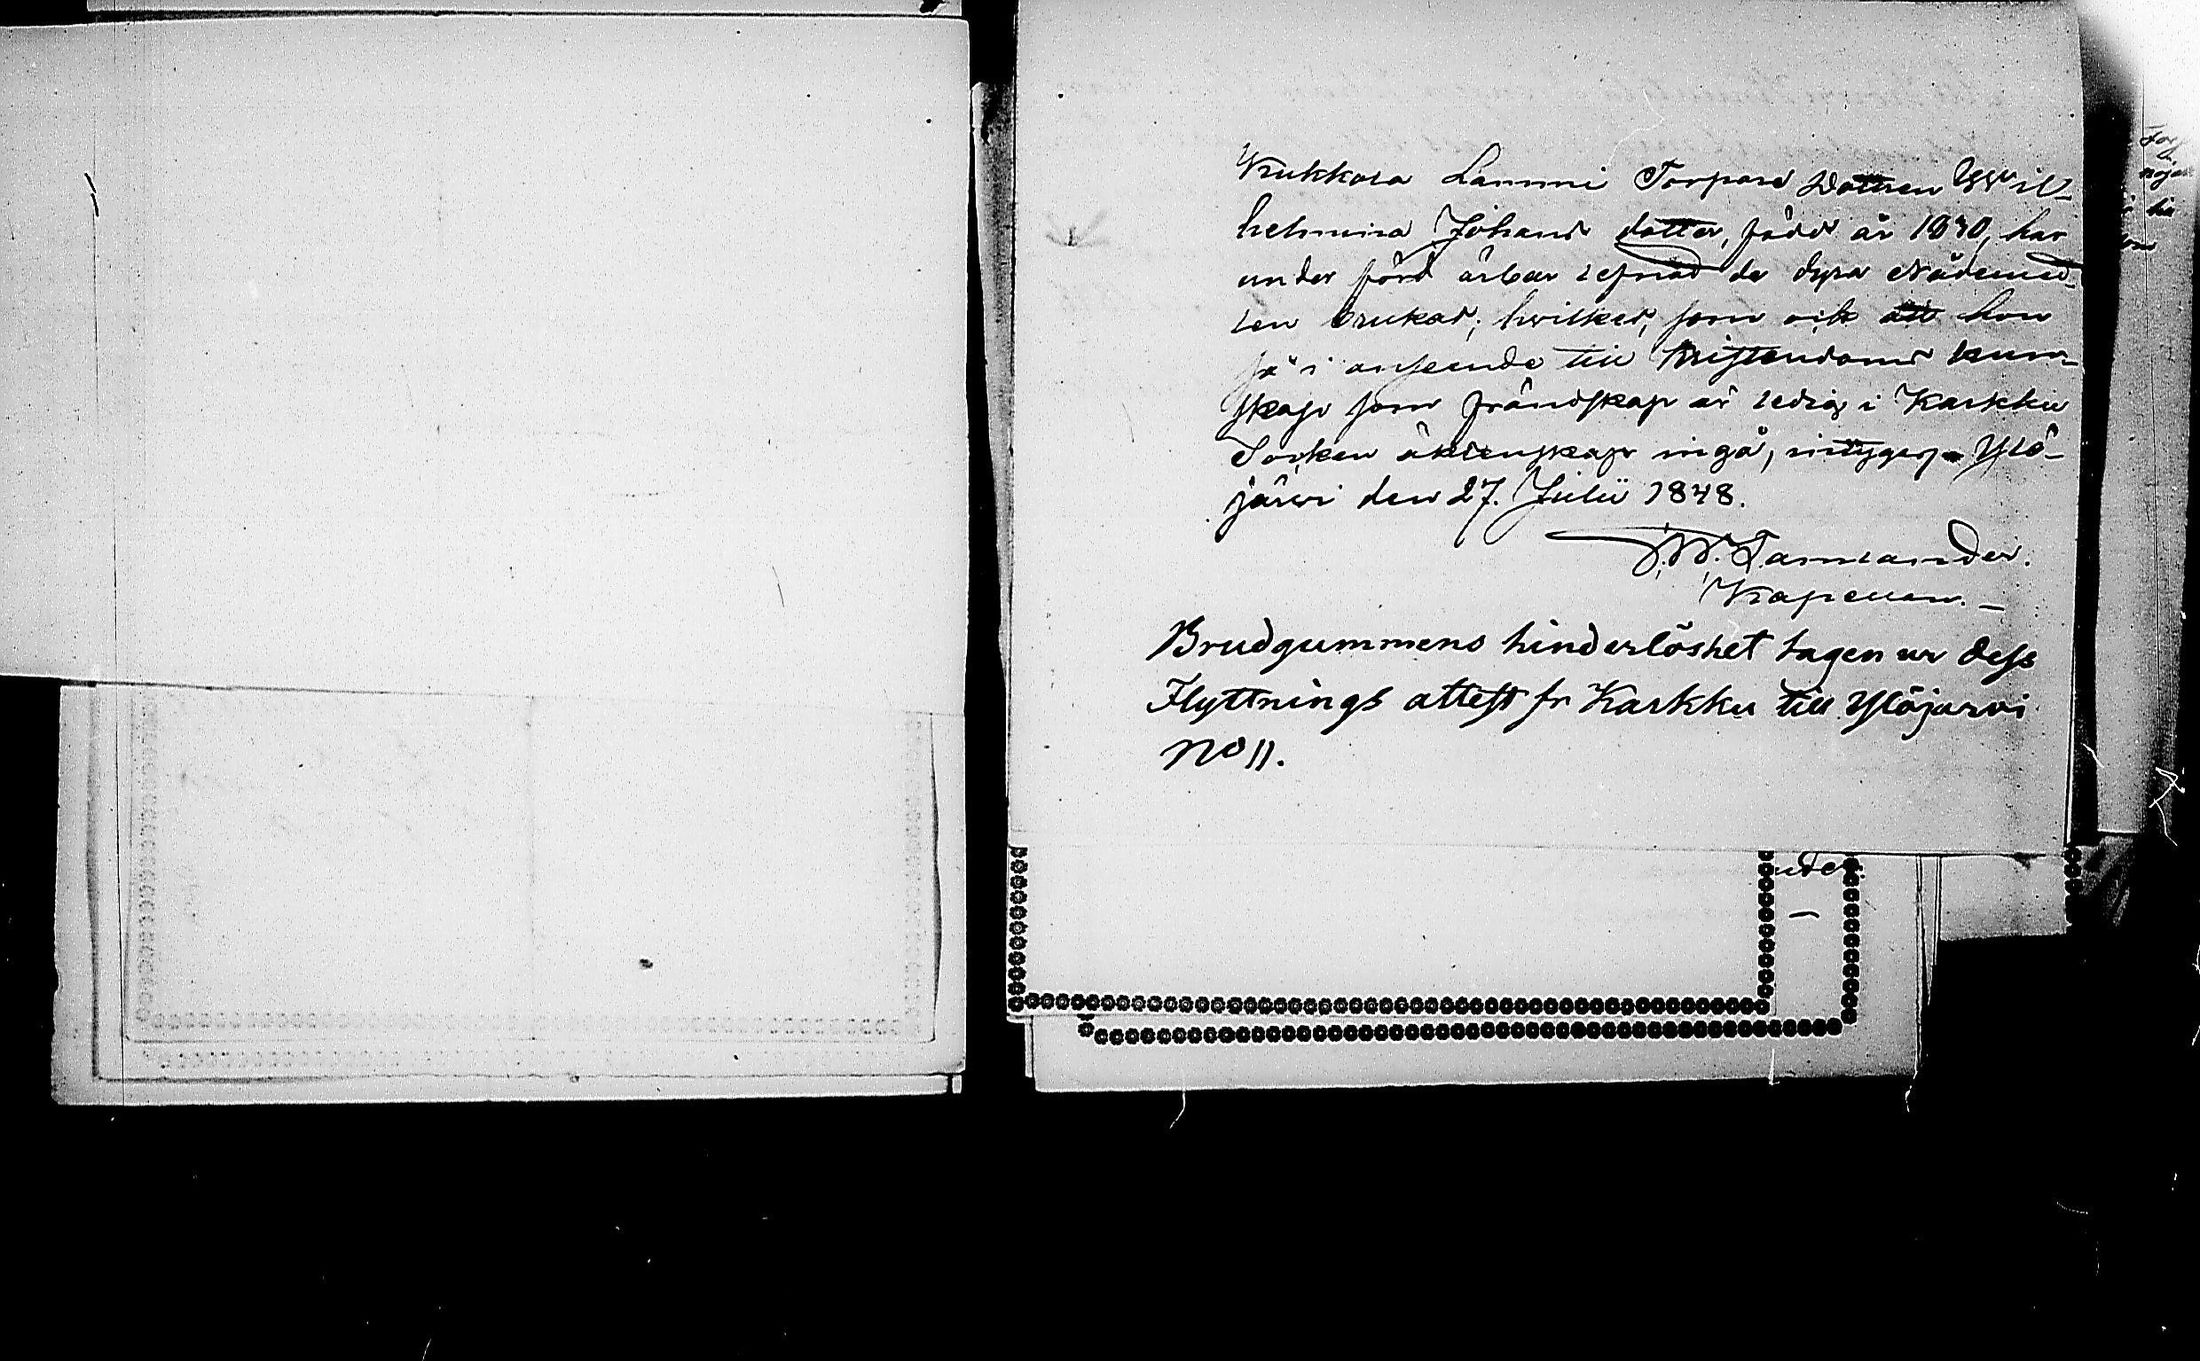 Kukkola Lammi Torpare Dottren Wil-
helmina Johans dotter, född år 1830, har
under förd ärbar lefnad de dyra Nådemed-
len brukat; hvilket, som ock att hon
så i anseende till kristendoms kun-
skap som frändskap är ledig i Karkku
Socken äktenskap ingå, intygas. Ylö-
järvi den 27. Julii 1848.
Kapellan. –
Brudgummens hinderlöshet tagen ur dess
Flyttnings attest fr Karkku till Ylöjarvi
No 11.